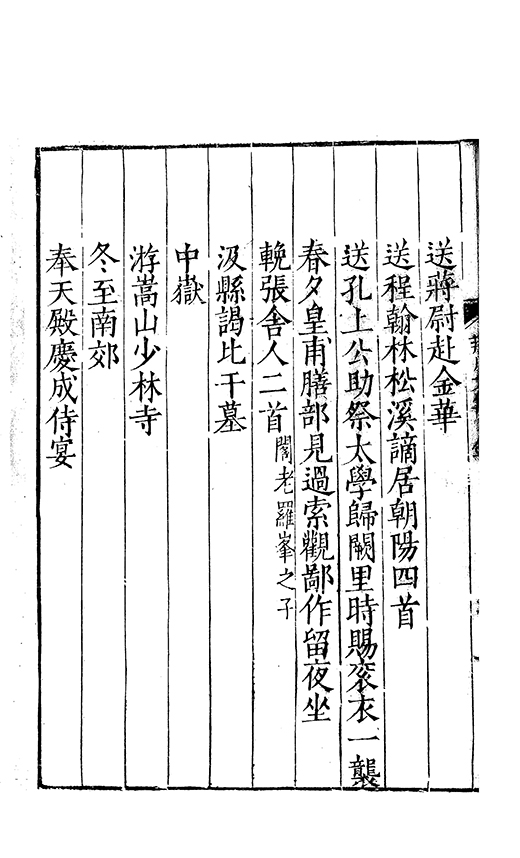 送蔣尉赴金華
送程翰林松溪謫居朝陽四首
送孔上公助祭太學歸闕里時賜衮衣一襲
春夕皇甫膳部見過索觀鄙作留夜坐
輓張舍人二首閣老羅峯之子
汲縣謁比干墓
中嶽
游嵩山少林寺
冬至南郊
奉天殿慶成侍宴